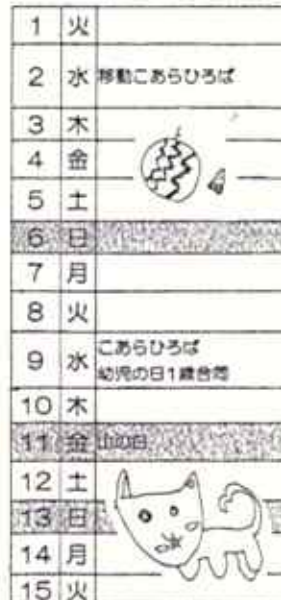 1 火
2 水 移動こあらひろば
3 木
4 金
5 土
6 日
7 月
8 火
9 水 こあらひろば
幼児の日1歳合同
10 木
11 金 山の日
12 土
13 日
14 月
15 火